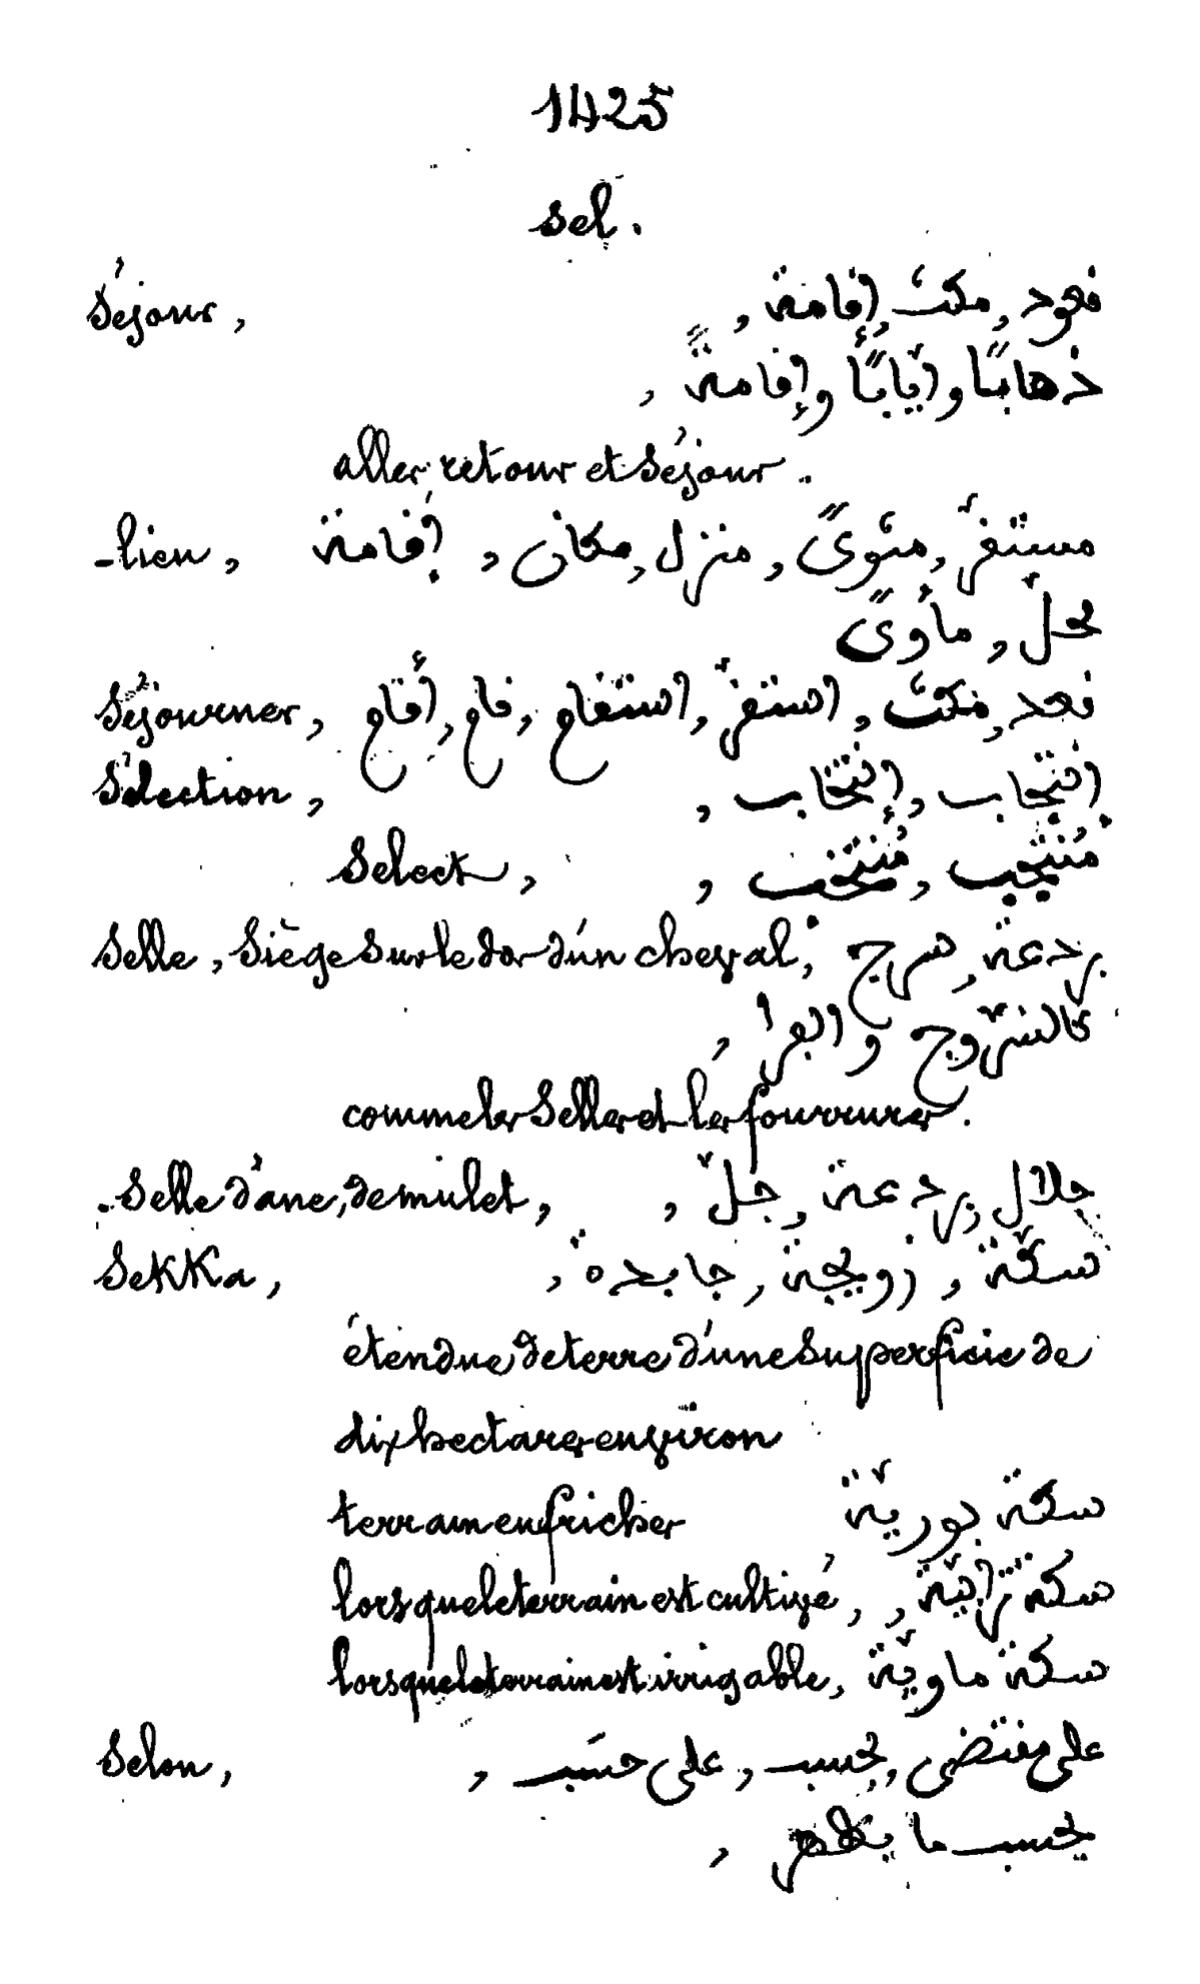 1425
sel.
Séjour, قعود, مكث, إقامة,
ذهابًا وإيّابًا وإقامةً,
aller retour et séjour.
-lieu, مستقرّ, مثوىً, منزل, مكان, إقامة
محلّ, مأوىً
Séjourner, قعد, مكث, استقرّ, استقام, قام, أقام
Sélection, انتجاب, إنتخاب,
Select, مُنتجب, مُنتخب,
Selle, Siège sur le dos d'un cheval, بردعة, سرج
كالسّروج والفرا,
comme les Selles et les fourrures.
-Selle d'ane, de mulet, جلال, بردعة, جلّ,
SekKa, سكّة, زويجة, جابدة,
étendue de terre d'une superficie de
dix hectares environ
terrain en friches سكة بوريّة
lorsque le terrain est cultivé, سكة ترابيّة,
lorsque le terrain est irrigable, سكة ماويّة
Selon, على مقتضى, بحسب, على حسَب,
بحسب ما يظهر,